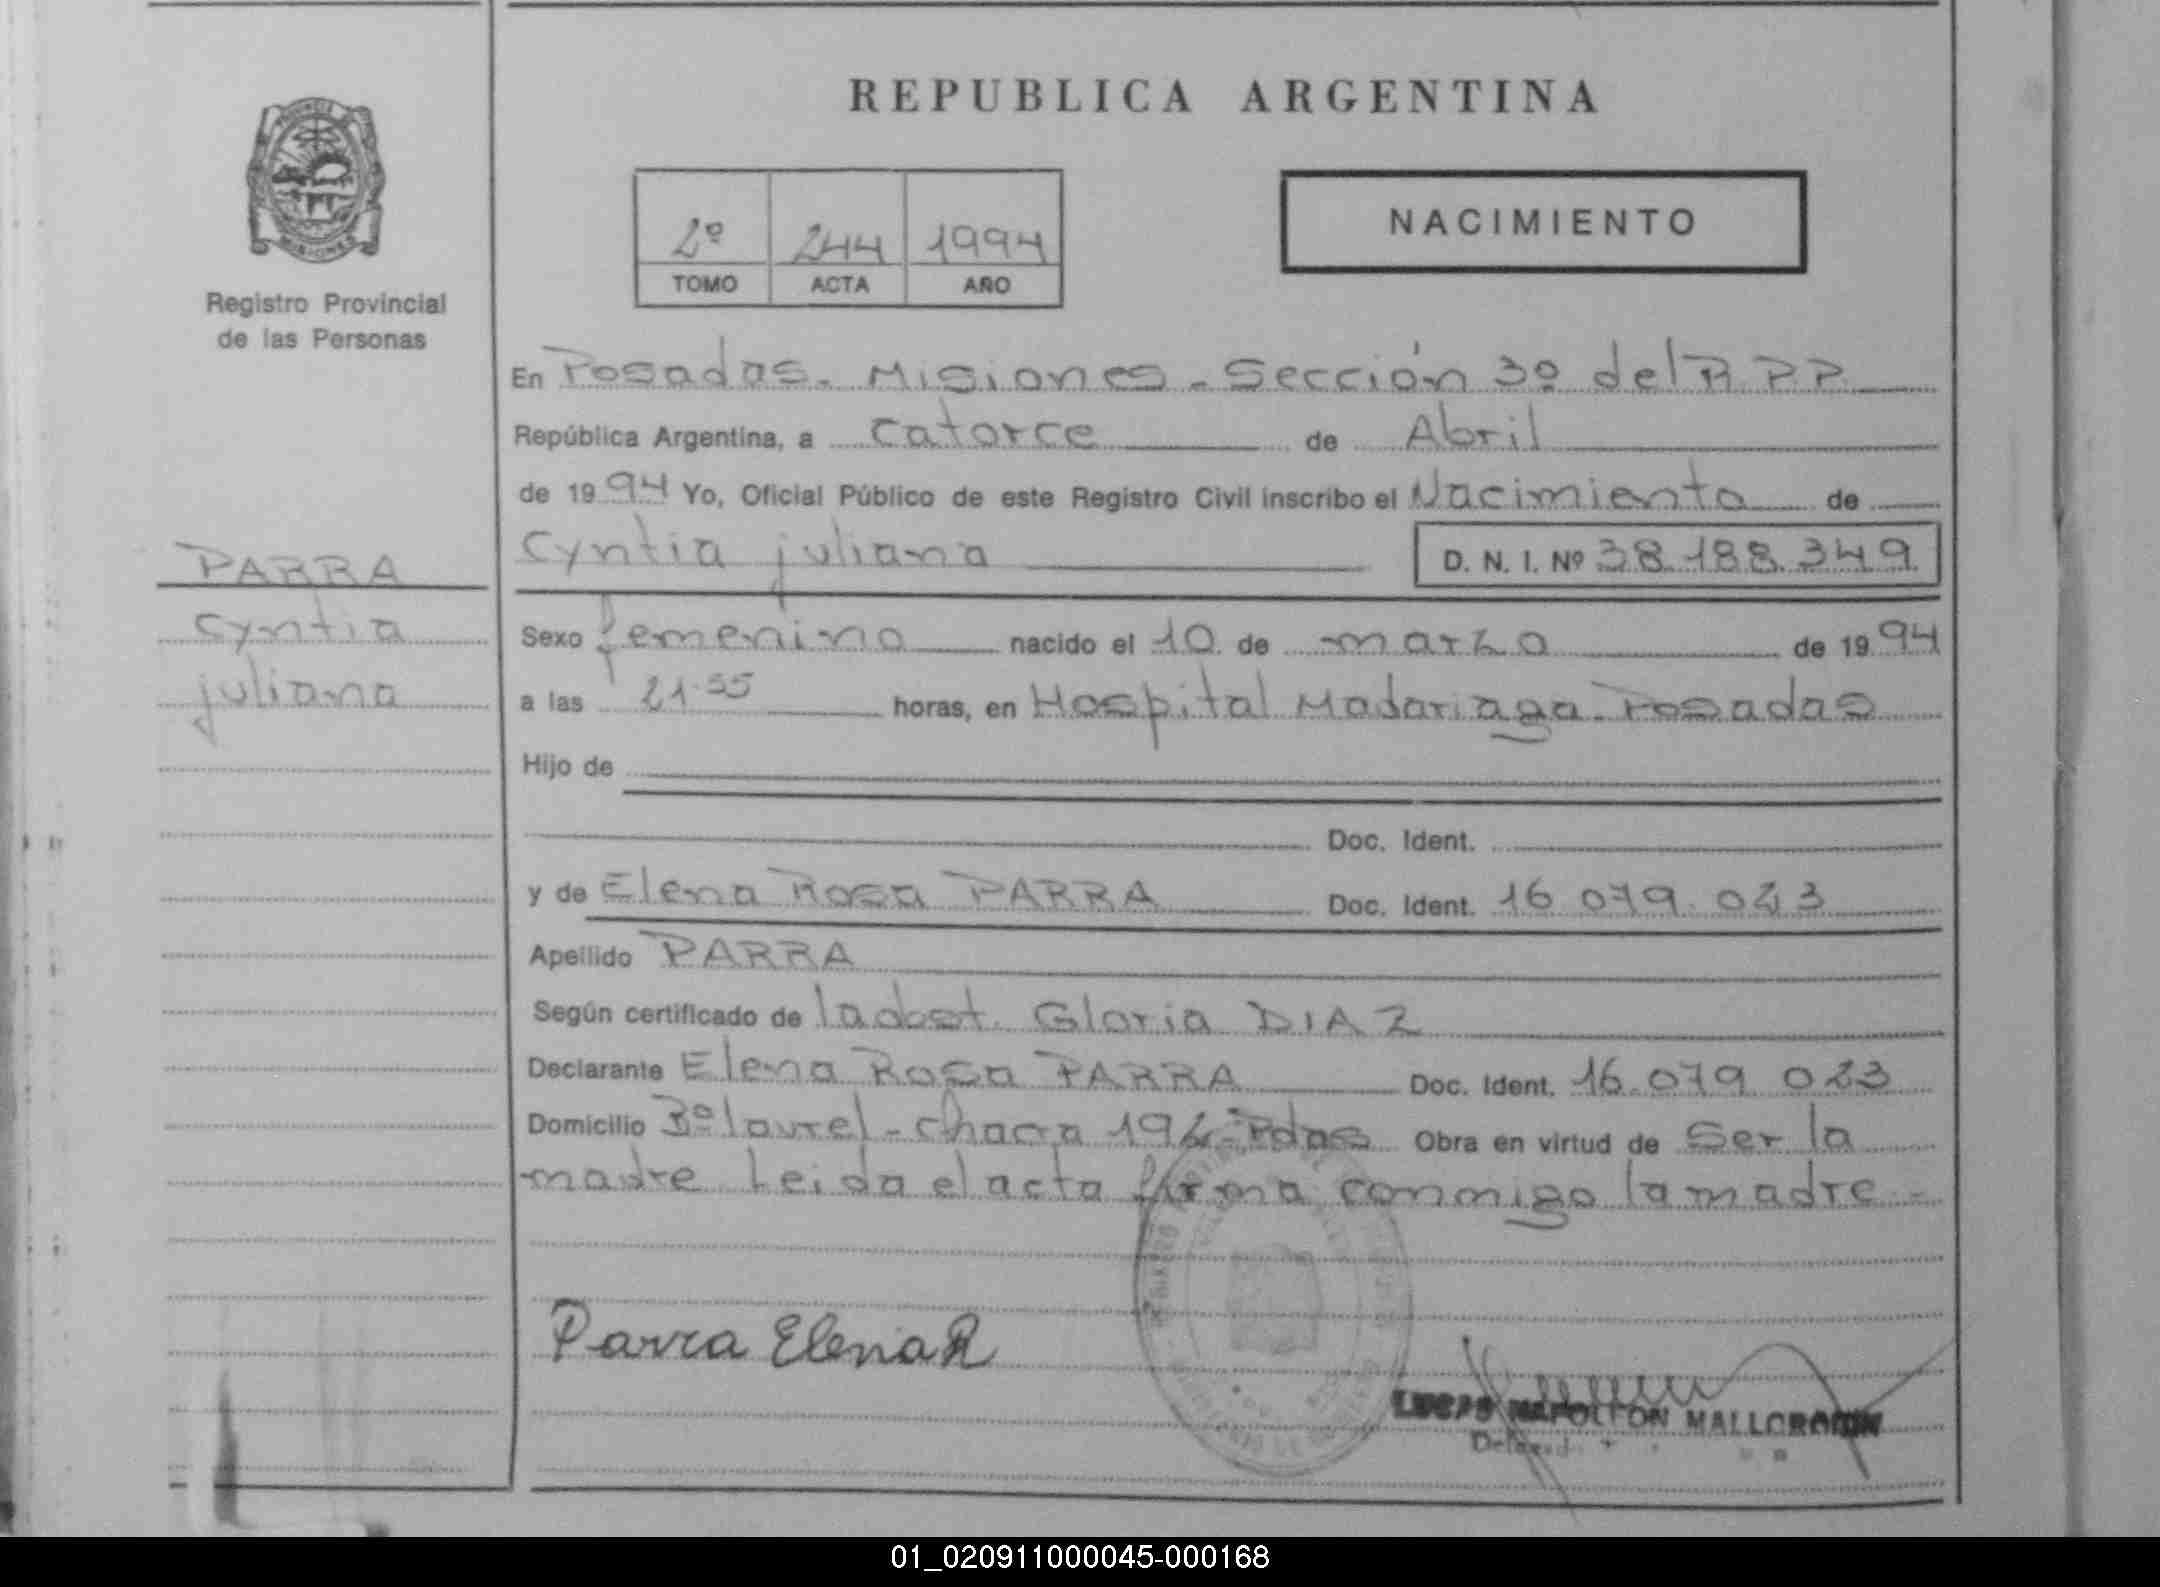 REPUBLICA ARGENTINA
PROVINCIA
MISIONES
Registro Provincial
de las Personas
2º 244 1994
TOMO ACTA AÑO
NACIMIENTO
En Posadas. Misiones. Sección 3º del R.P.P.
República Argentina, a Catorce de Abril
de 1994 Yo, Oficial Público de este Registro Civil inscribo el Nacimiento de
Cyntia juliana D. N. I. Nº 38.188.349
PARRA
Cyntia
juliana
Sexo femenino nacido el 10 de marzo de 1994
a las 21.55 horas, en Hospital Madariaga. Posadas
Hijo de
Doc. Ident.
y de Elena Rosa PARRA Doc. Ident. 16.079.023
Apellido PARRA
Según certificado de la obst. Gloria DIAZ
Declarante Elena Rosa PARRA Doc. Ident. 16.079.023
Domicilio Bº laurel - chacra Pdas Obra en virtud de Ser la
madre Leida el acta firma conmigo la madre -
Parra Elena R
NAPOLEON
01_020911000045-000168